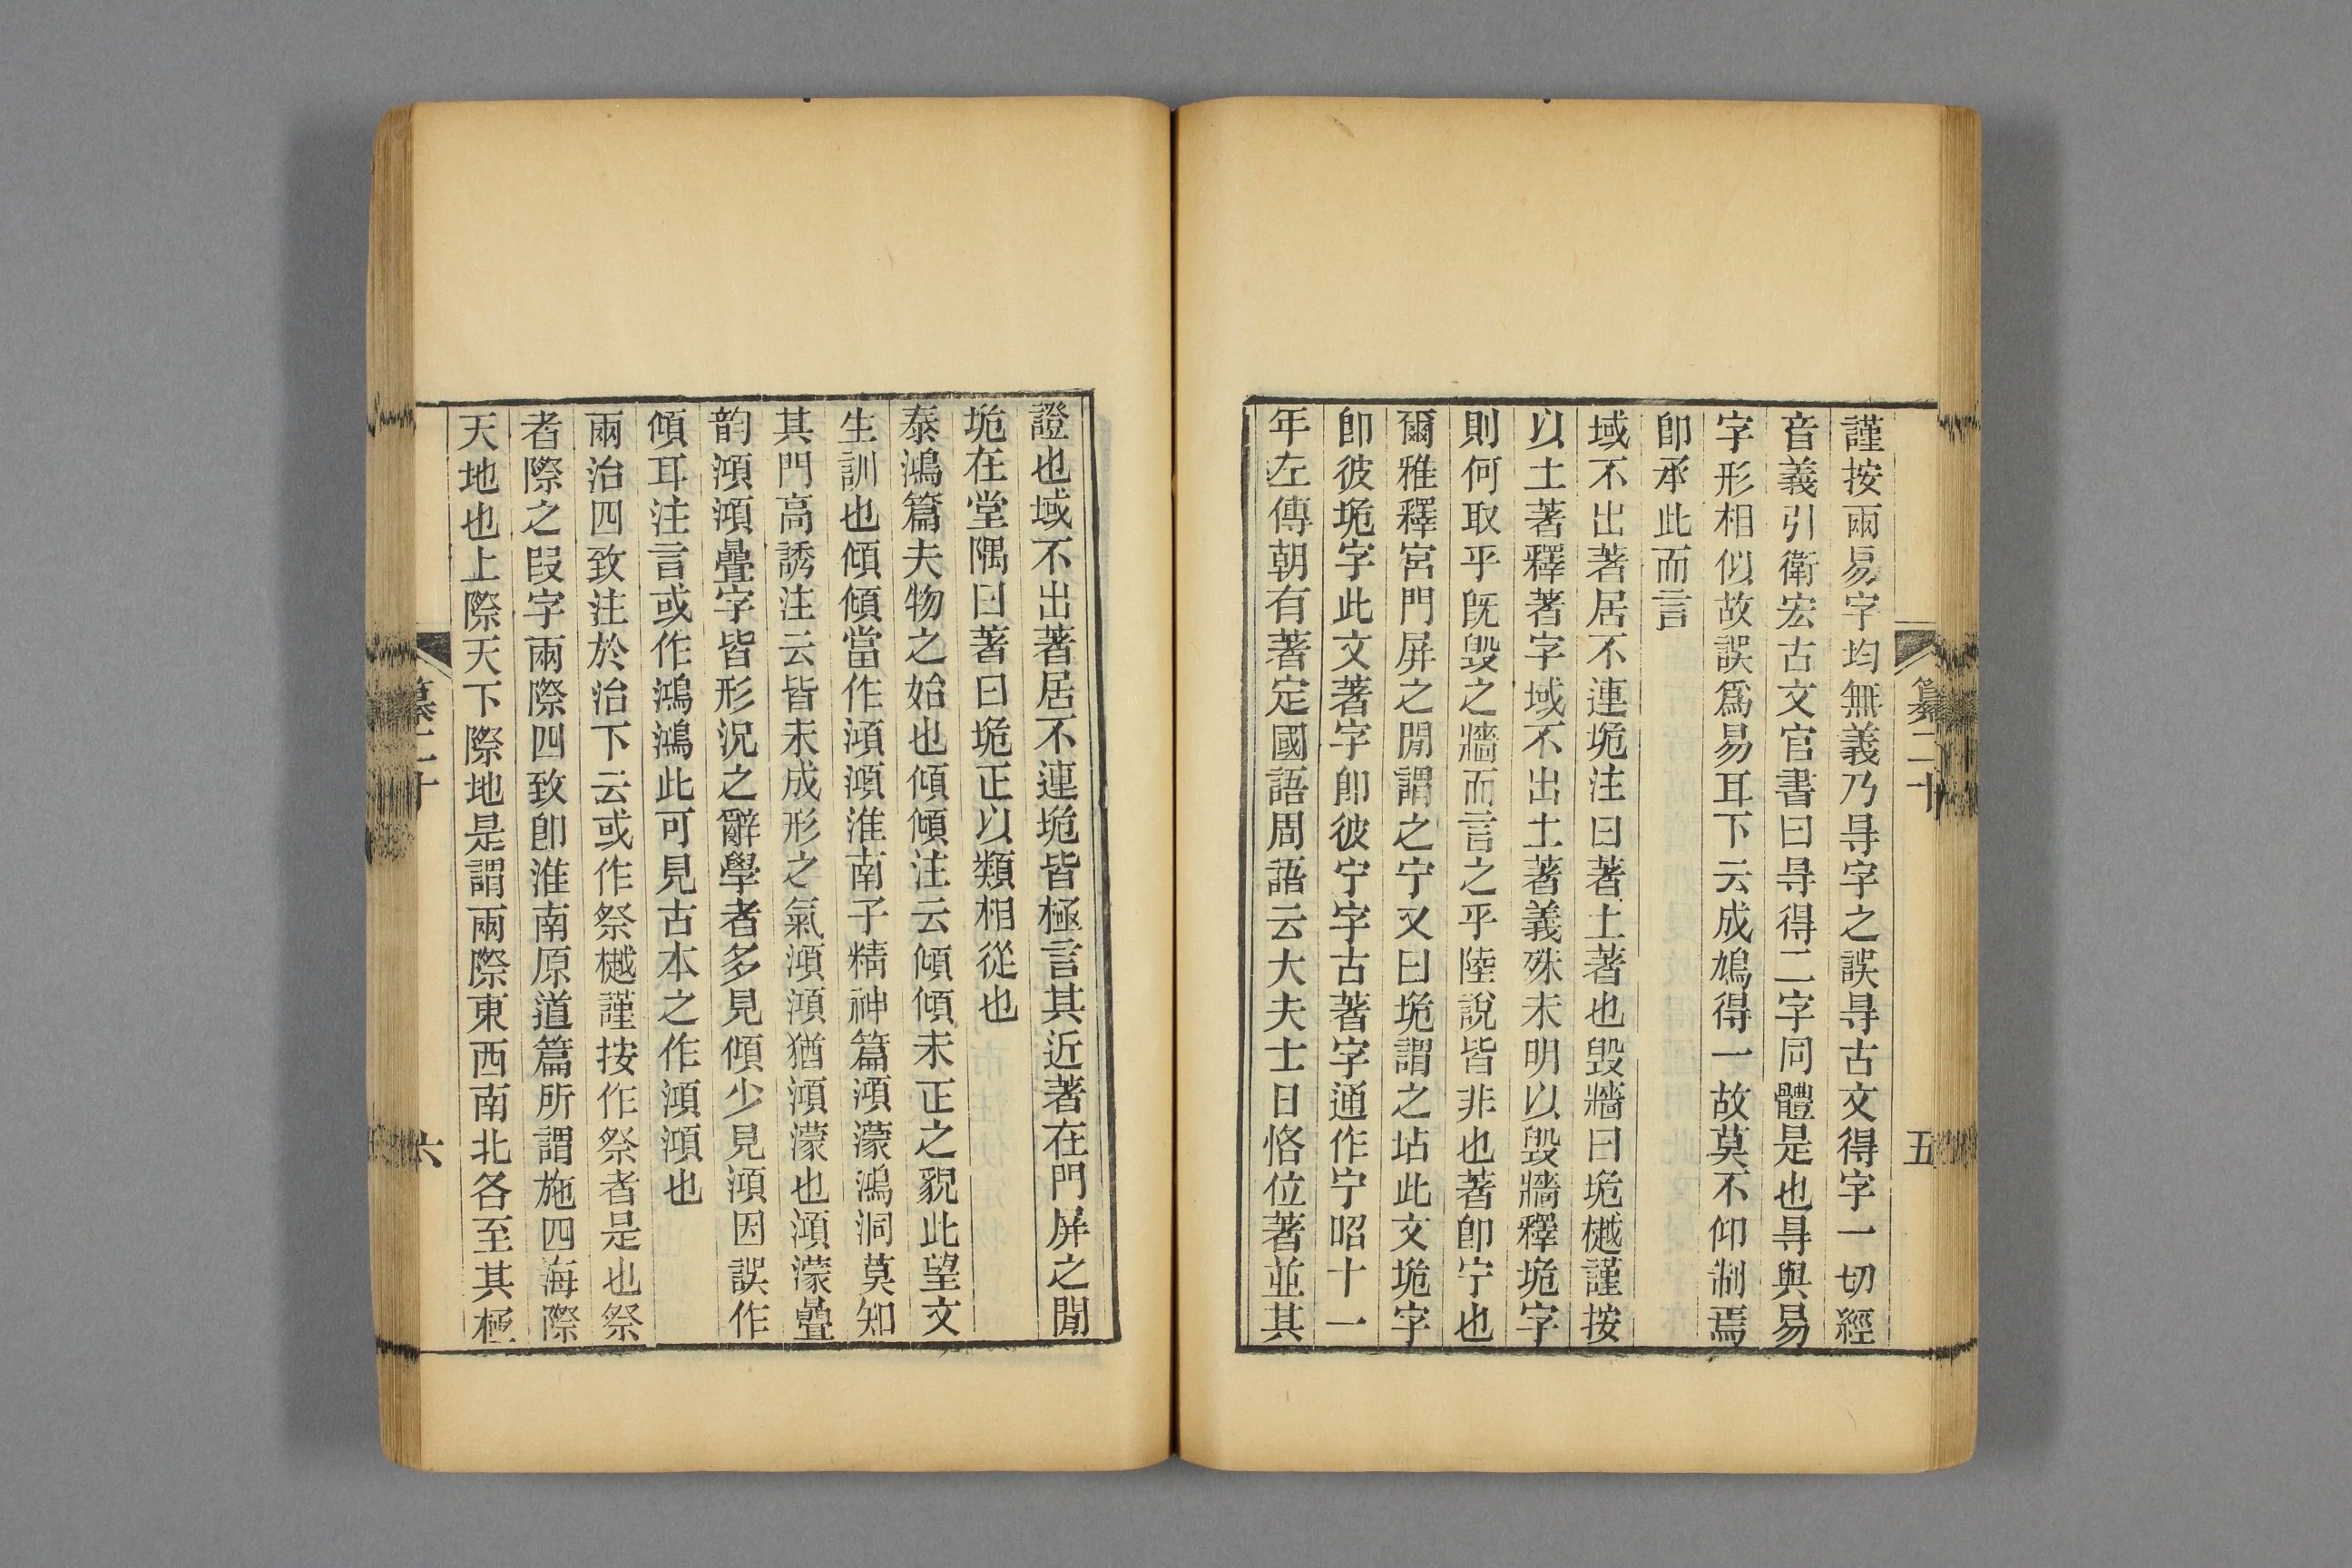 纂二十
五
謹按兩易字均無義乃㝵字之誤㝵古文得字一切經
音義引衛宏古文官書曰㝵得二字同體是也㝵與易
字形相似故誤爲易耳下云成鳩得一故莫不仰制焉
卽承此而言
域不出著居不連垝注曰著土著也毀牆曰垝樾謹按
以土著釋著字域不出土著義殊未明以毀牆釋垝字
則何取乎旣毀之牆而言之乎陸說皆非也著卽宁也
爾雅釋宮門屏之閒謂之宁又曰垝謂之坫此文垝字
卽彼垝字此文著字卽彼宁字古著字通作宁昭十一
年左傳朝有著定國語周語云大夫士日恪位著並其
證也域不出著居不連垝皆極言其近著在門屏之閒
垝在堂隅曰著曰垝正以類相從也
泰鴻篇夫物之始也傾傾注云傾傾未正之貌此望文
生訓也傾傾當作澒澒淮南子精神篇澒濛鴻洞莫知
其門高誘注云皆未成形之氣澒澒猶澒濛也澒濛疊
韵澒澒疊字皆形況之辭學者多見傾少見澒因誤作
傾耳注言或作鴻鴻此可見古本之作澒澒也
兩治四致注於治下云或作祭樾謹按作祭者是也祭
者際之叚字兩際四致卽淮南原道篇所謂施四海際
天地也上際天下際地是謂兩際東西南北各至其極
纂二十
六